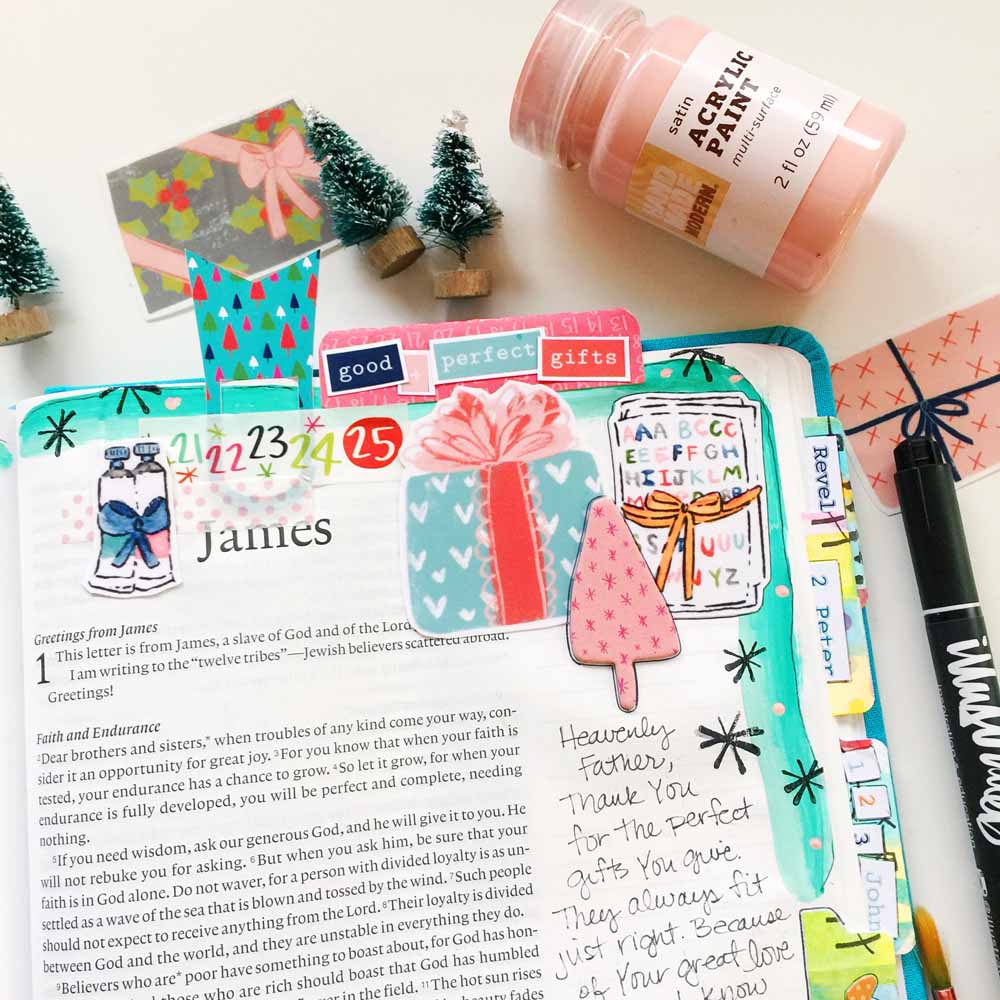 satin
ACRYLIC
PAINT
multi-surface
2 fl oz (59 ml)
HAND
MADE
MODERN.
good + perfect gifts
21 22 23 24 25
AAA BCCC
EEEFFGH
HIIJKLM
UUU
YZ
James
Greetings from James
1 This letter is from James, a slave of God and of the Lord
I am writing to the “twelve tribes”—Jewish believers scattered abroad.
Greetings!
Faith and Endurance
2Dear brothers and sisters,* when troubles of any kind come your way, con-
sider it an opportunity for great joy. 3For you know that when your faith is
tested, your endurance has a chance to grow. 4So let it grow, for when your
endurance is fully developed, you will be perfect and complete, needing
nothing.
5If you need wisdom, ask our generous God, and he will give it to you. He
will not rebuke you for asking. 6But when you ask him, be sure that your
faith is in God alone. Do not waver, for a person with divided loyalty is as un-
settled as a wave of the sea that is blown and tossed by the wind. 7Such people
should not expect to receive anything from the Lord. 8Their loyalty is divided
between God and the world, and they are unstable in everything they do.
9Believers who are* poor have something to boast about, for God has hon-
those who are rich should boast that God has humbled
in the field. 11The hot sun rises
beauty fades
Heavenly
Father,
Thank You
for the perfect
gifts You give.
They always fit
just right. Because
of Your great love
know
Revel
2 Peter
1
2
3
John
illustrators